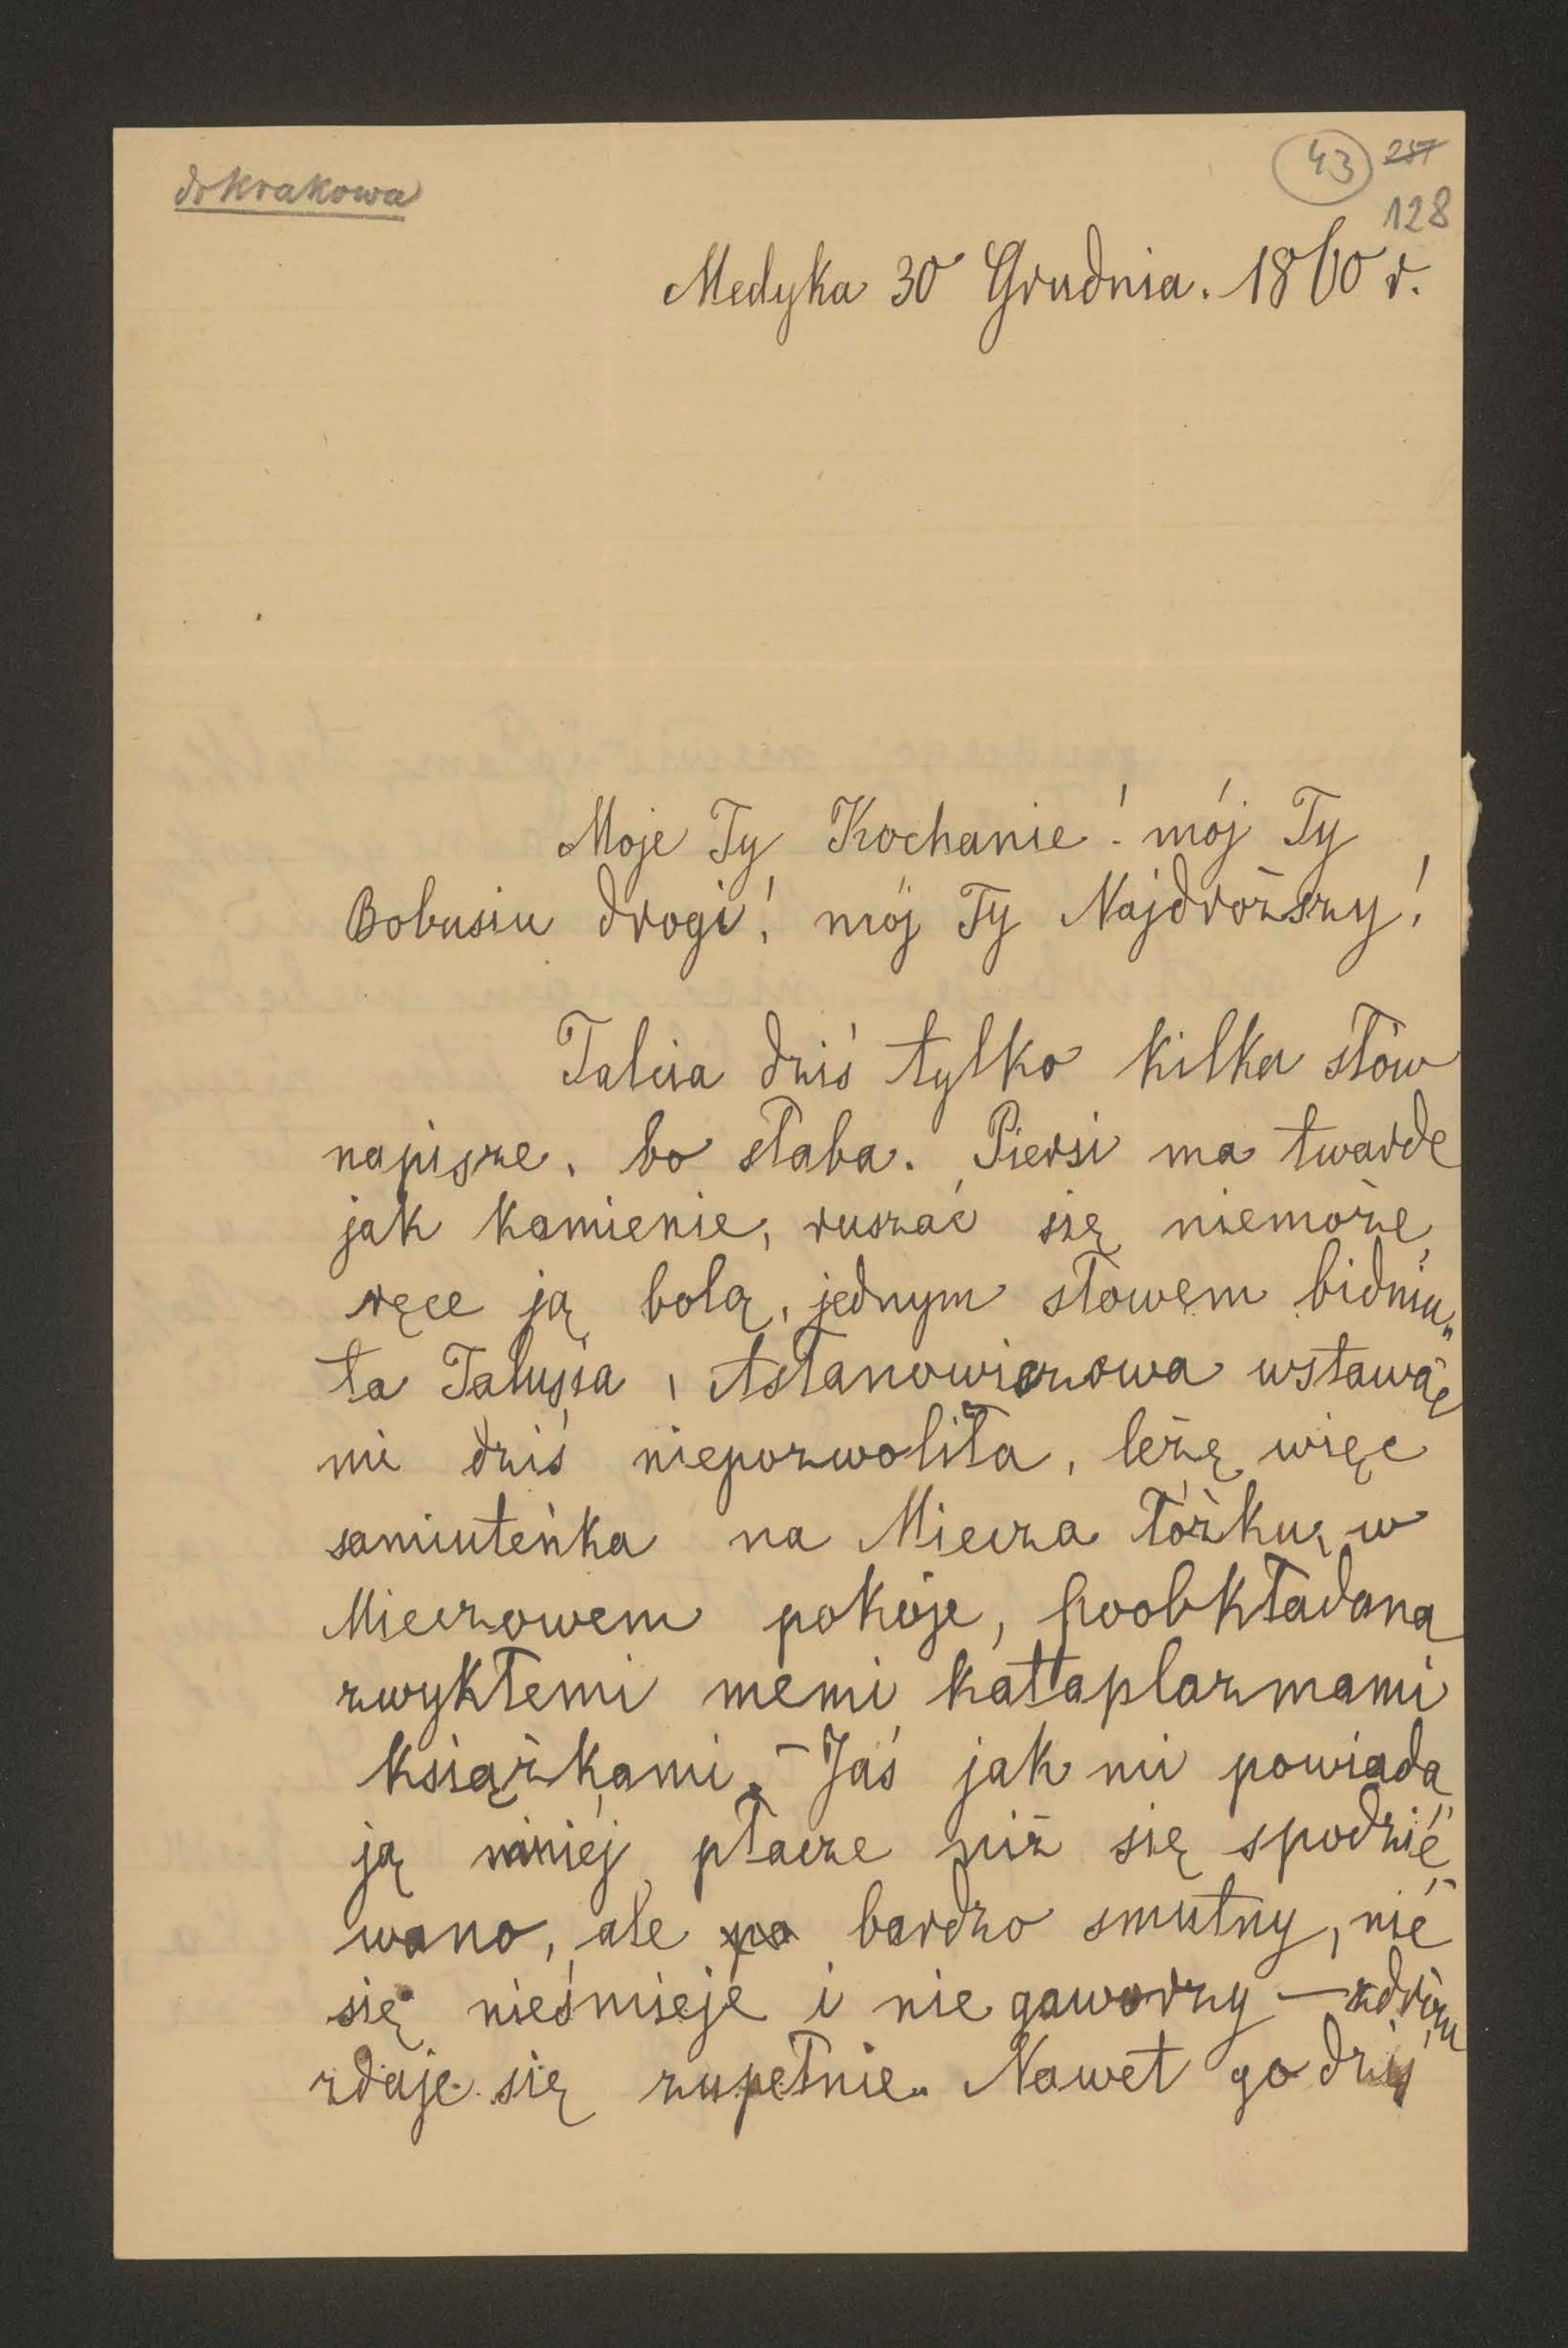 do Krakowa
43 257
128
Medyka 30 Grudnia. 1860 r.
Moje Ty Kochanie! mój Ty
Bobusiu drogi! mój Ty Najdroższy!
Talcia dziś tylko kilka słów
napisze, bo słaba. Piersi ma twarde
jak kamienie, ruszać się niemoże,
ręce ją bolą, jednym słowem bidniu„
ta Talusia, Astanowiczowa wstawać
mi dziś niepozwoliła, leżę więc
samiuteńka na Miecza łóżku, w
Mieczowem pokoje, poobkładana
zwykłemi memi kattaplazmami
książkami. – Jaś jak mi powiada„
ją mniéj płacze niż się spodzié„
wano, ale po bardzo smutny, nic
się nieśmieje i nie gaworzy –
zdaje się zupełnie. Nawet go dziś